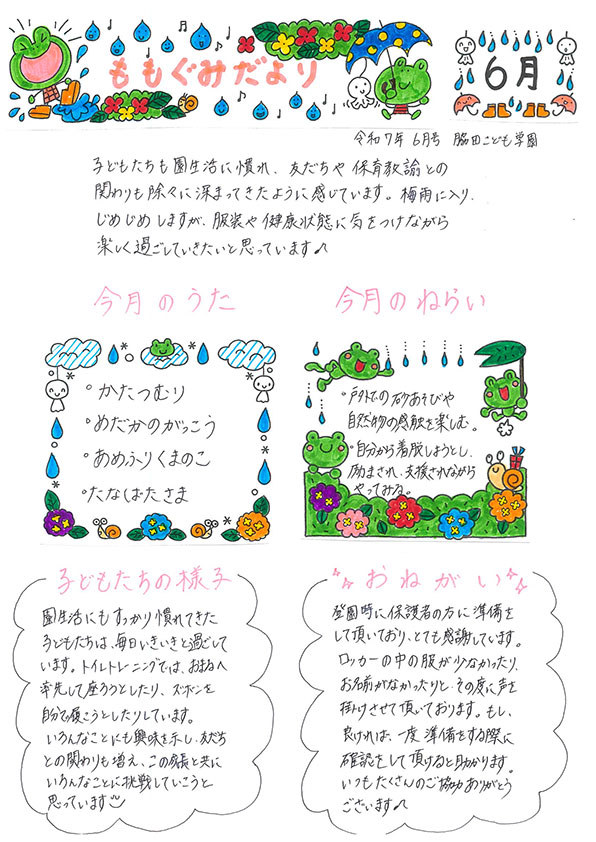 ももぐみだより
6月
令和7年 6月号 脇田こども学園
子どもたちも園生活に慣れ、友だちや保育教諭との
関わりも除々に深まってきたように感じています。梅雨に入り、
じめじめしますが、服装や健康状態に気をつけながら
楽しく過ごしていきたいと思っています♪
今月のうた
°かたつむり
°めだかのがっこう
°あめふりくまのこ
°たなばたさま
今月のねらい
°戸外での砂あそびや
自然物の感触を楽しむ。
°自分から着脱しようとし、
励まされ、支援されながら
やってみる。
子どもたちの様子
園生活にもすっかり慣れてきた
子どもたちは、毎日いきいきと過ごして
います。トイレトレーニングでは、おまるへ
率先して座ろうとしたり、ズボンを
自分で履こうとしたりしています。
いろんなことにも興味を示し、友だち
との関わりも増え、この成長と共に
いろんなことに挑戦していこうと
思っています
おねがい
登園時に保護者の方に準備を
して頂いており、とても感謝しています。
ロッカーの中の服が少なかったり、
お名前がなかったりと、その度に声を
掛けさせて頂いております。もし、
良ければ、一度準備をする際に
確認をして頂けると助かります。
いつもたくさんのご協力ありがとう
ございます♪